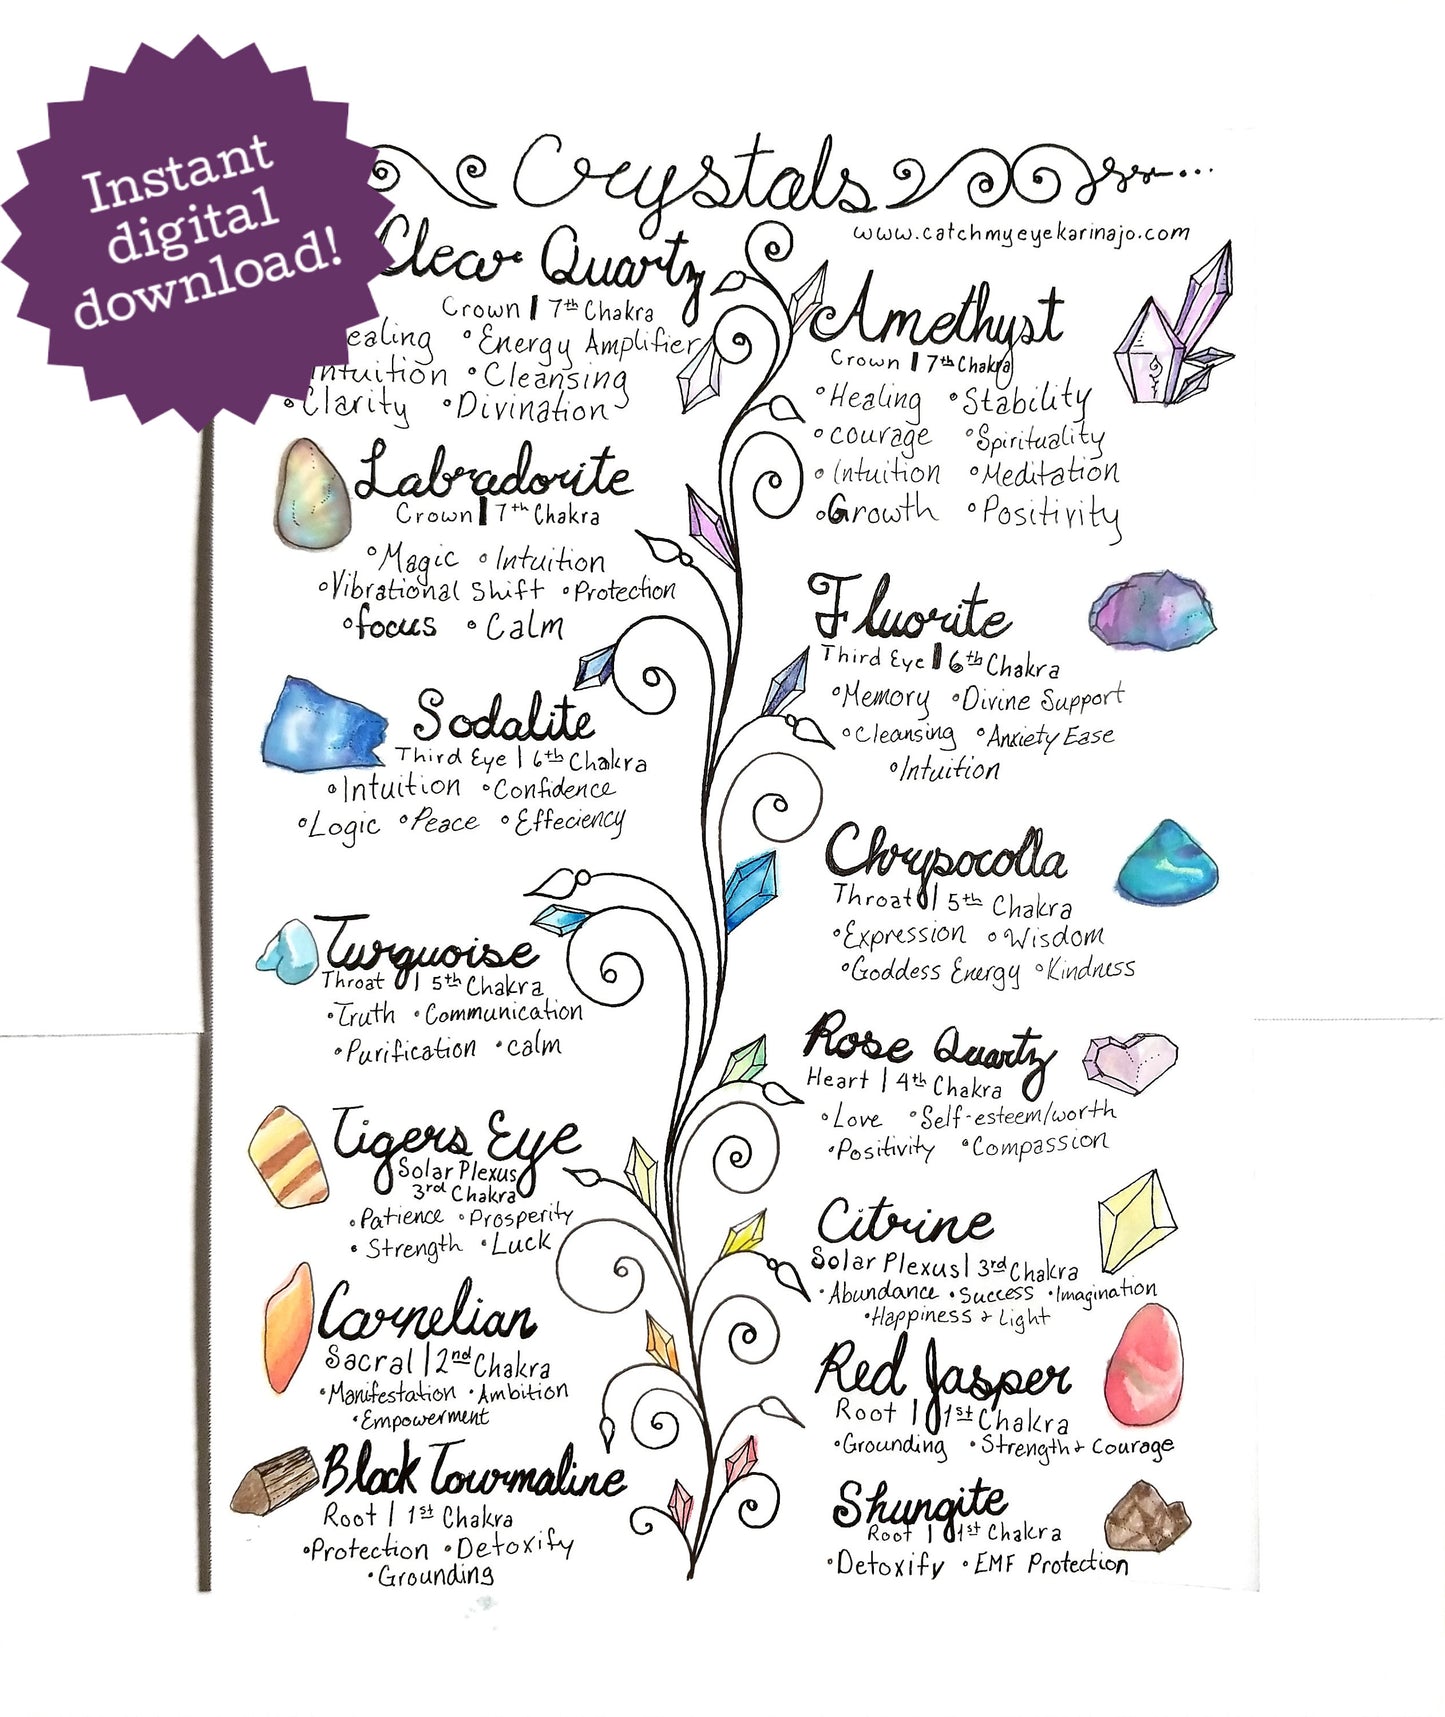 Instant
digital
download!
Crystals
www.catchmyeyekarinajo.com
Clear Quartz
Crown | 7th Chakra
ealing •Energy Amplifier
Intuition •Cleansing
•Clarity •Divination
Labradorite
Crown | 7th Chakra
•Magic •Intuition
•Vibrational Shift •Protection
•focus •Calm
Sodalite
Third Eye | 6th Chakra
•Intuition •Confidence
•Logic •Peace •Effeciency
Turquoise
Throat | 5th Chakra
•Truth •Communication
•Purification •calm
Tigers Eye
Solar Plexus
3rd Chakra
•Patience •Prosperity
•Strength •Luck
Carnelian
Sacral | 2nd Chakra
•Manifestation •Ambition
•Empowerment
Black Tourmaline
Root | 1st Chakra
•Protection •Detoxify
•Grounding
Amethyst
Crown | 7th Chakra
•Healing •Stability
•courage •Spirituality
•Intuition •Meditation
•Growth •Positivity
Fluorite
Third Eye | 6th Chakra
•Memory •Divine Support
•Cleansing •Anxiety Ease
•Intuition
Chrysocolla
Throat | 5th Chakra
•Expression •Wisdom
•Goddess Energy •Kindness
Rose Quartz
Heart | 4th Chakra
•Love •Self-esteem/worth
•Positivity •Compassion
Citrine
Solar Plexus | 3rd Chakra
•Abundance •Success •Imagination
•Happiness + Light
Red Jasper
Root | 1st Chakra
•Grounding •Strength + Courage
Shungite
Root | 1st Chakra
•Detoxify •EMF Protection